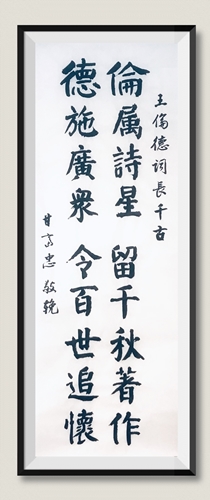 王倫德詞長千古
倫属詩星 留千秋著作
德施廣衆 令百世追懷
甘高忠敬輓